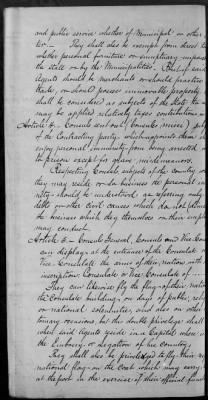 and public service whether of Municipal or other
They shall also be exempt from direct
whether personal furniture or sumptuary imposed
the state or by the Municipalities. If the said
agents should be merchants or should practice
trade, or should possess immovable property
shall be considered as subjects of the State
may be applied relatively taxes contributions
Article 4. Consuls
of the Contracting party which appoints them
enjoy personal immunity from being arrested
to prison except for grave misdemeanors.
Respecting Consuls, subjects of the country
they may reside in the personal
nity should be understood as referring only
debts or other civil causes which do not
the business which they themselves or their
may conduct.
Article 5. Consuls General, Consuls and Vice Con
can display at the entrance of the Consulate or
Vice Consulate the arms of their nation with
inscription: Consulate or Vice Consulate of
They can likewise fly the flag of their nation
the Consulate building, on days of public,
or national solemnities, and also on other
tomary occasions, but the double privilege shall
when said Agents reside in a Capital where
the Embassy or Legation of his country.
They shall also be privileged to fly their
national flag on the boat which may carry
at the port in the exercise of their official